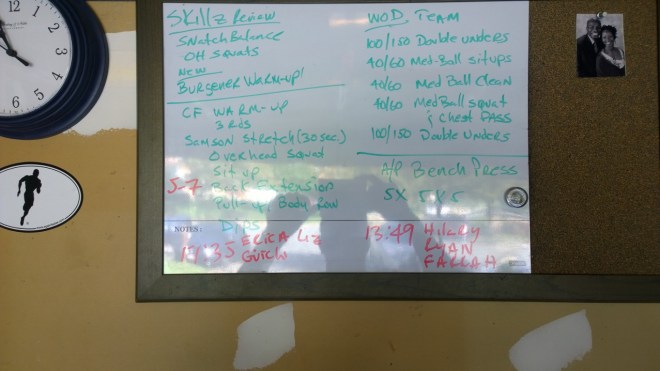 12
11
1
2
3
4
5
6
Skillz Review
Snatch Balance
OH Squats
New
Burgener Warm-up!
CF WARM-UP
3 RDS
Samson Stretch (30 sec.)
Overhead Squad
Sit up
5-7 Back Extension
Pull-up, Body Row
Dips
NOTES:
17:35 ERICA Liz
W.O.D. TEAM
100/150 Double unders
40/60 Med-Ball situps
40/60 Med Ball Clean
40/60 Med Ball squat
& Chest PASS
100/150 Double Unders
A/P Bench Press
5X 5X5
13:49 Hilary
RYAN
FALLAH